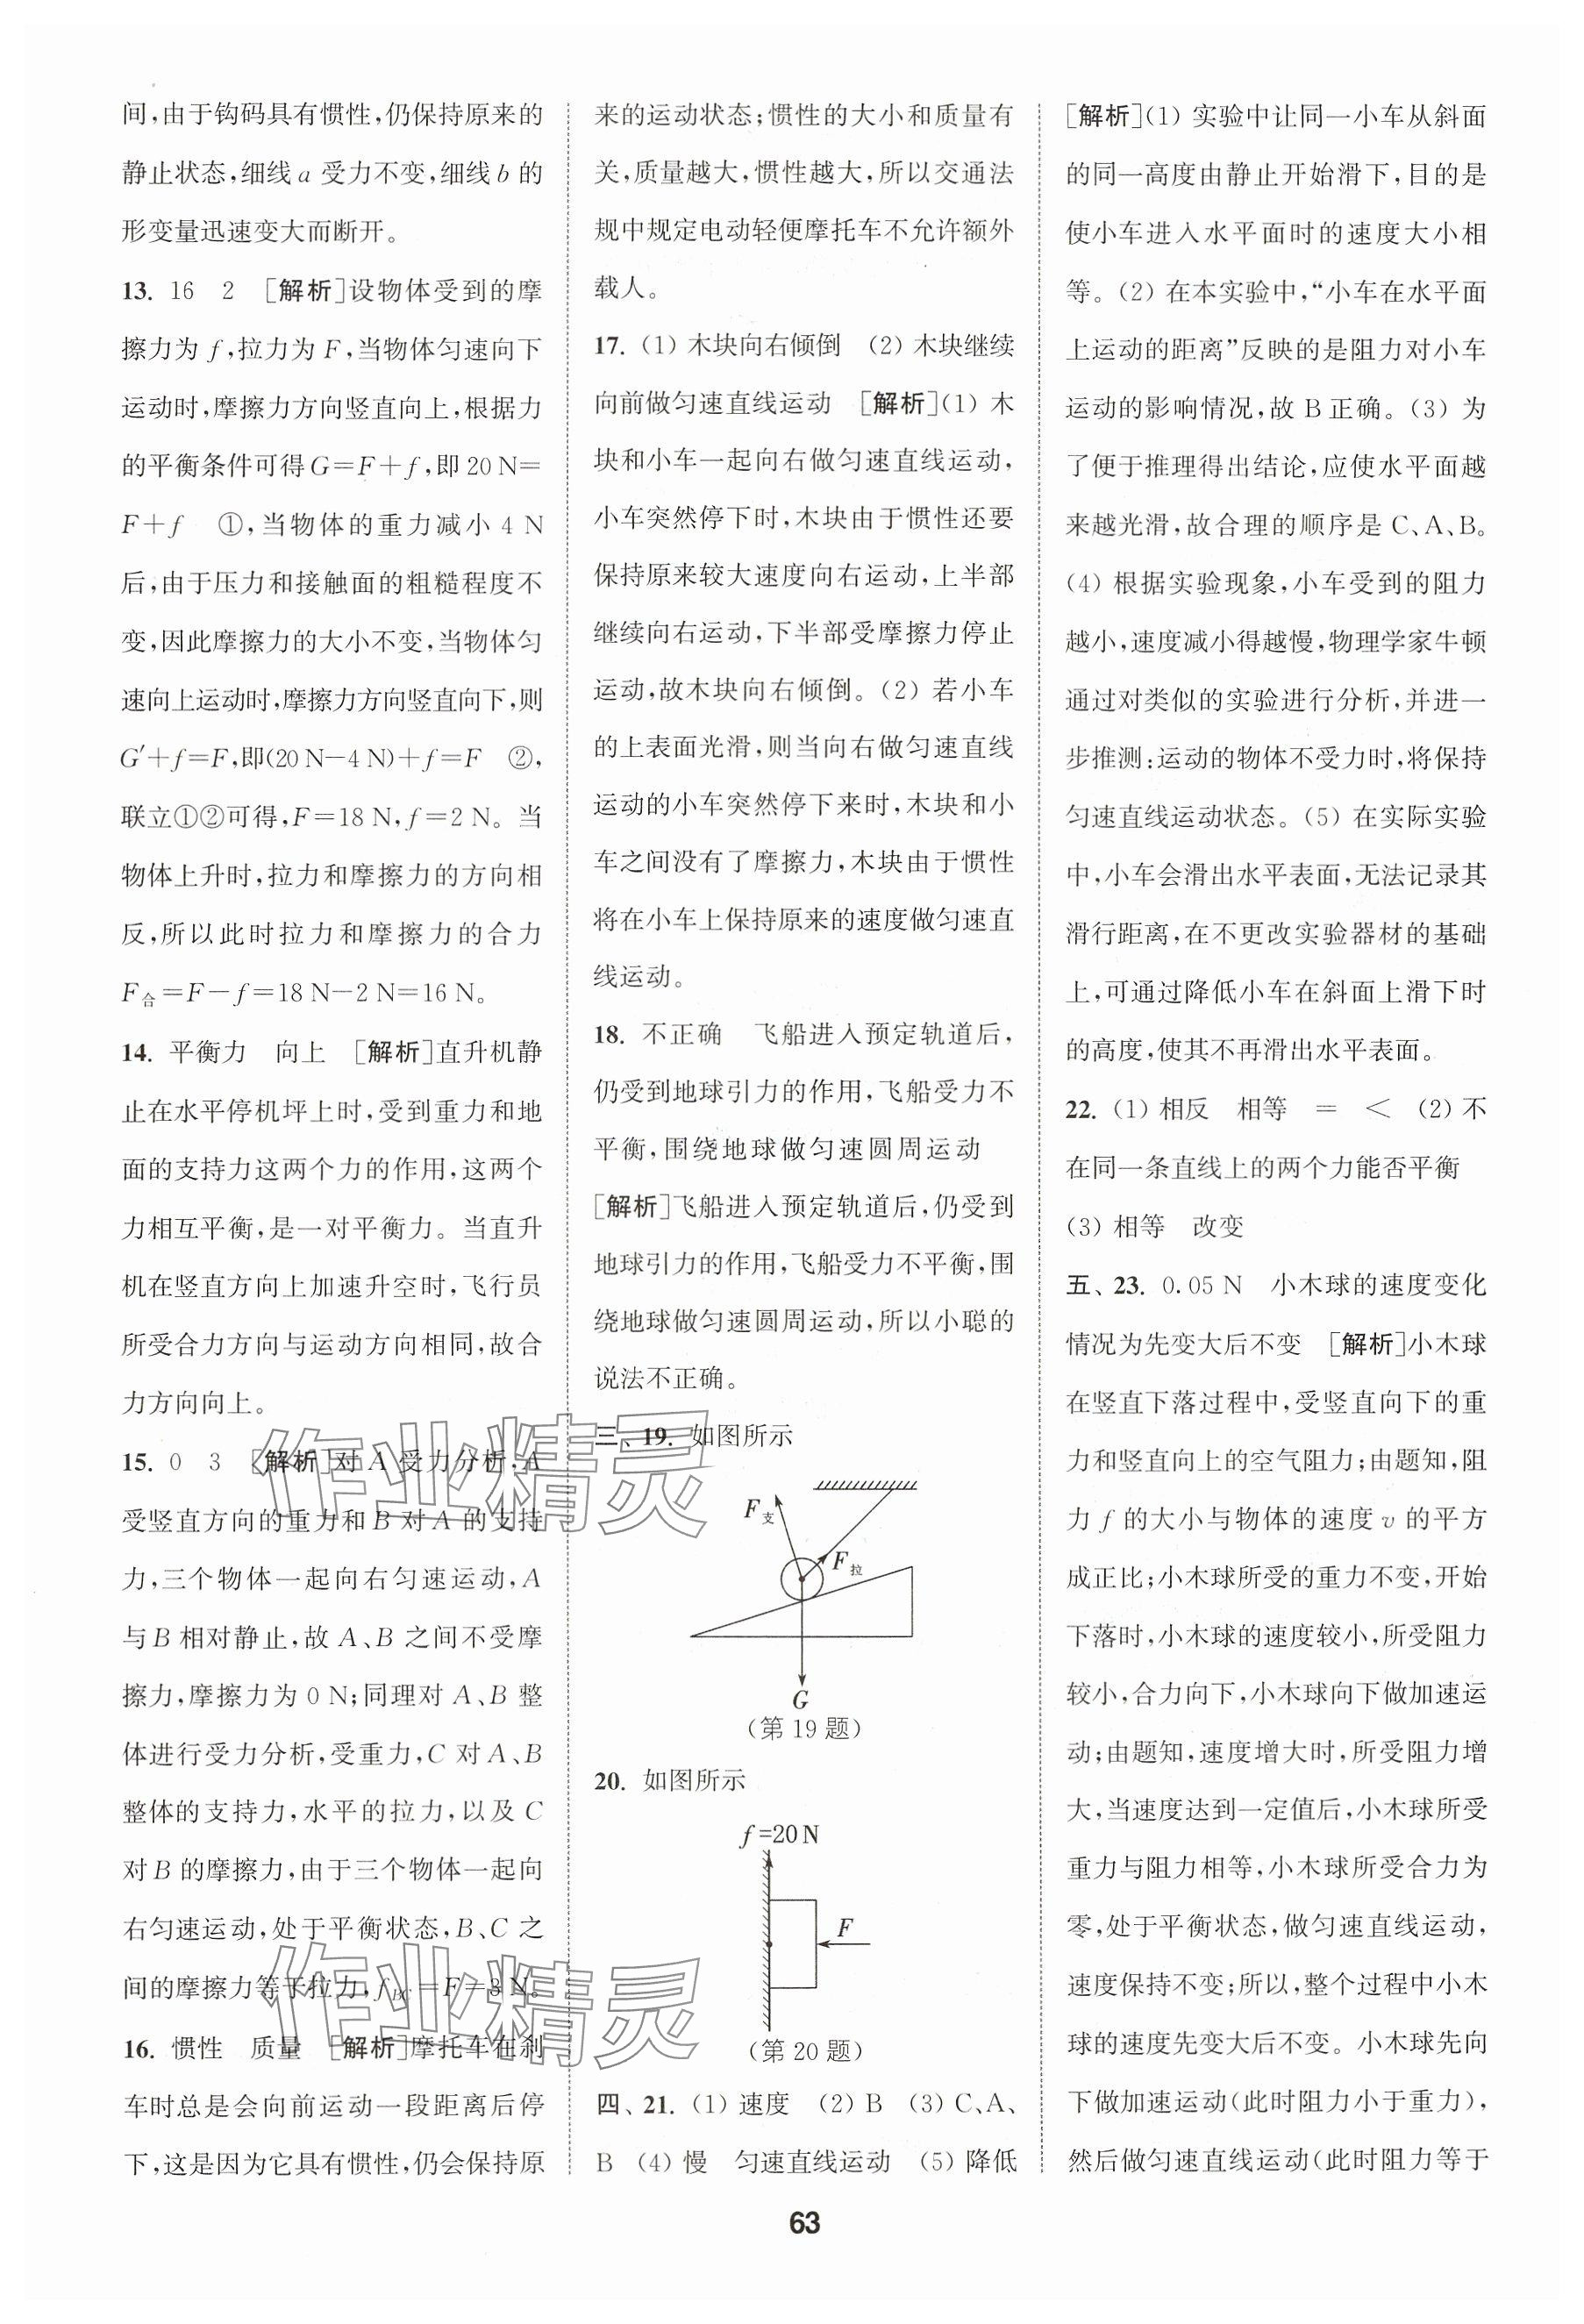 间,由于钩码具有惯性,仍保持原来的
静止状态,细线a 受力不变,细线b 的
形变量迅速变大而断开。
13. 16 2 [解析]设物体受到的摩
擦力为 f,拉力为 F,当物体匀速向下
运动时,摩擦力方向竖直向上,根据力
的平衡条件可得G=F+f,即 20 N=
F+f ①,当物体的重力减小 4 N
后,由于压力和接触面的粗糙程度不
变,因此摩擦力的大小不变,当物体匀
速向上运动时,摩擦力方向竖直向下,则
G′+f=F,即(20 N-4 N)+f=F ②,
联立①②可得,F=18 N,f=2 N。当
物体上升时,拉力和摩擦力的方向相
反,所以此时拉力和摩擦力的合力
F合=F-f=18 N-2 N=16 N。
14. 平衡力 向上 [解析]直升机静
止在水平停机坪上时,受到重力和地
面的支持力这两个力的作用,这两个
力相互平衡,是一对平衡力。当直升
机在竖直方向上加速升空时,飞行员
所受合力方向与运动方向相同,故合
力方向向上。
15. 0 3 [解析]对 A 受力分析,A
受竖直方向的重力和 B 对 A 的支持
力,三个物体一起向右匀速运动,A
与 B 相对静止,故 A、B 之间不受摩
擦力,摩擦力为 0 N;同理对 A、B 整
体进行受力分析,受重力,C 对 A、B
整体的支持力,水平的拉力,以及 C
对 B 的摩擦力,由于三个物体一起向
右匀速运动,处于平衡状态,B、C 之
间的摩擦力等于拉力,fBC=F=3 N。
16. 惯性 质量 [解析]摩托车在刹
车时总是会向前运动一段距离后停
下,这是因为它具有惯性,仍会保持原
来的运动状态;惯性的大小和质量有
关,质量越大,惯性越大,所以交通法
规中规定电动轻便摩托车不允许额外
载人。
17. (1) 木块向右倾倒 (2) 木块继续
向前做匀速直线运动 [解析](1) 木
块和小车一起向右做匀速直线运动,
小车突然停下时,木块由于惯性还要
保持原来较大速度向右运动,上半部
继续向右运动,下半部受摩擦力停止
运动,故木块向右倾倒。(2) 若小车
的上表面光滑,则当向右做匀速直线
运动的小车突然停下来时,木块和小
车之间没有了摩擦力,木块由于惯性
将在小车上保持原来的速度做匀速直
线运动。
18. 不正确 飞船进入预定轨道后,
仍受到地球引力的作用,飞船受力不
平衡,围绕地球做匀速圆周运动
[解析]飞船进入预定轨道后,仍受到
地球引力的作用,飞船受力不平衡,围
绕地球做匀速圆周运动,所以小聪的
说法不正确。
三、19. 如图所示
F支
F拉
G
(第 19 题)
20. 如图所示
f=20 N
F
(第 20 题)
四、21. (1) 速度 (2) B (3) C、A、
B (4) 慢 匀速直线运动 (5) 降低
[解析](1) 实验中让同一小车从斜面
的同一高度由静止开始滑下,目的是
使小车进入水平面时的速度大小相
等。(2) 在本实验中,“小车在水平面
上运动的距离”反映的是阻力对小车
运动的影响情况,故 B 正确。(3) 为
了便于推理得出结论,应使水平面越
来越光滑,故合理的顺序是 C、A、B。
(4) 根据实验现象,小车受到的阻力
越小,速度减小得越慢,物理学家牛顿
通过对类似的实验进行分析,并进一
步推测:运动的物体不受力时,将保持
匀速直线运动状态。(5) 在实际实验
中,小车会滑出水平表面,无法记录其
滑行距离,在不更改实验器材的基础
上,可通过降低小车在斜面上滑下时
的高度,使其不再滑出水平表面。
22. (1) 相反 相等 = < (2) 不
在同一条直线上的两个力能否平衡
(3) 相等 改变
五、23. 0.05 N 小木球的速度变化
情况为先变大后不变 [解析]小木球
在竖直下落过程中,受竖直向下的重
力和竖直向上的空气阻力;由题知,阻
力 f 的大小与物体的速度 v 的平方
成正比;小木球所受的重力不变,开始
下落时,小木球的速度较小,所受阻力
较小,合力向下,小木球向下做加速运
动;由题知,速度增大时,所受阻力增
大,当速度达到一定值后,小木球所受
重力与阻力相等,小木球所受合力为
零,处于平衡状态,做匀速直线运动,
速度保持不变;所以,整个过程中小木
球的速度先变大后不变。小木球先向
下做加速运动(此时阻力小于重力),
然后做匀速直线运动(此时阻力等于
63
作业精灵
作业精灵